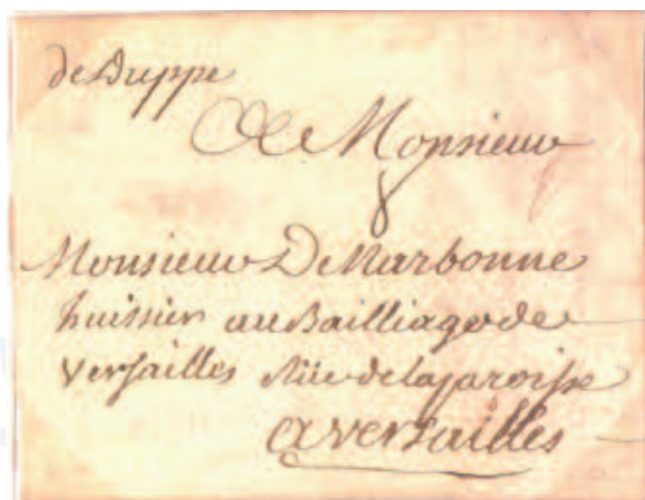 de Duppe
A Monsieur
8
Monsieur De Narbonne
huissier au Bailliage de
versailles Rüe de la paroisse
a versailles